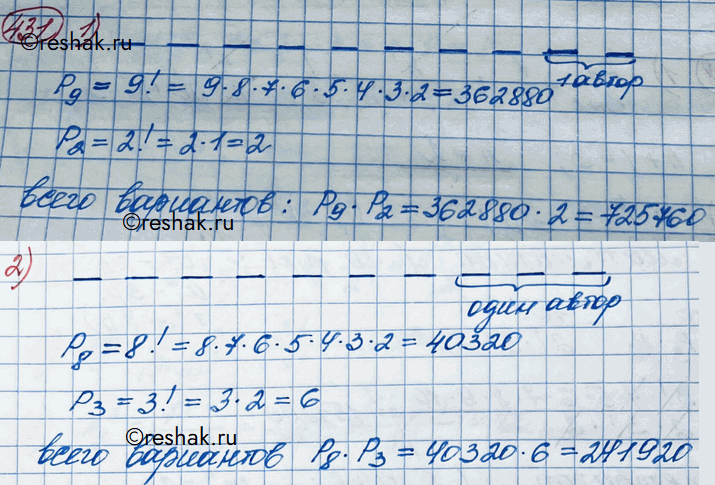 431 1)
©reshak.ru
1 автор
P₉ = 9! = 9·8·7·6·5·4·3·2=362880
P₂ = 2! = 2·1=2
всего вариантов: P₉·P₂=362880·2=725760
©reshak.ru
2)
один автор
P₈=8!=8·7·6·5·4·3·2=40320
P₃=3!=3·2=6
©reshak.ru
всего вариантов P₈·P₃=40320·6=241920